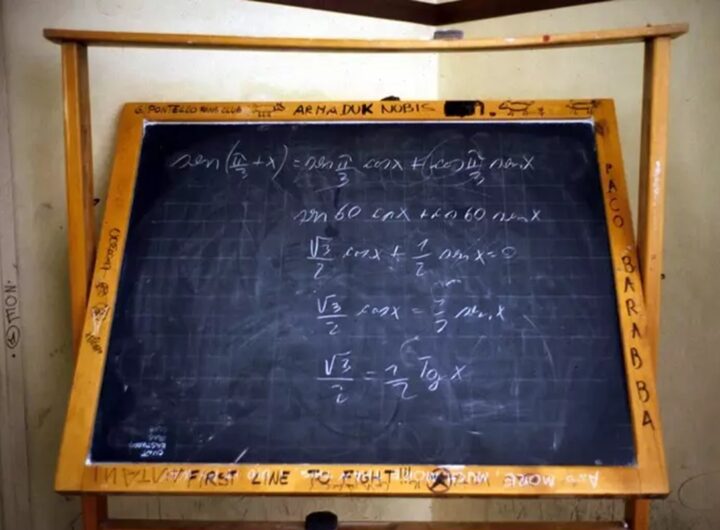 G. PONTELLO FANS CLUB ARMADUK NOBIS
sen(π/3 + x) = sen π/3 cosx + (cos π/3 senx
sen 60 cosx + cos 60 senx
√3/2 cosx + 1/2 senx = 0
√3/2 cosx = 1/2 sen x
√3/2 = 1/2 Tg x
PACO BARABBA
FIRST LINE TO FIGHT!!! Ⓐ
AND MORE, MUCH MORE